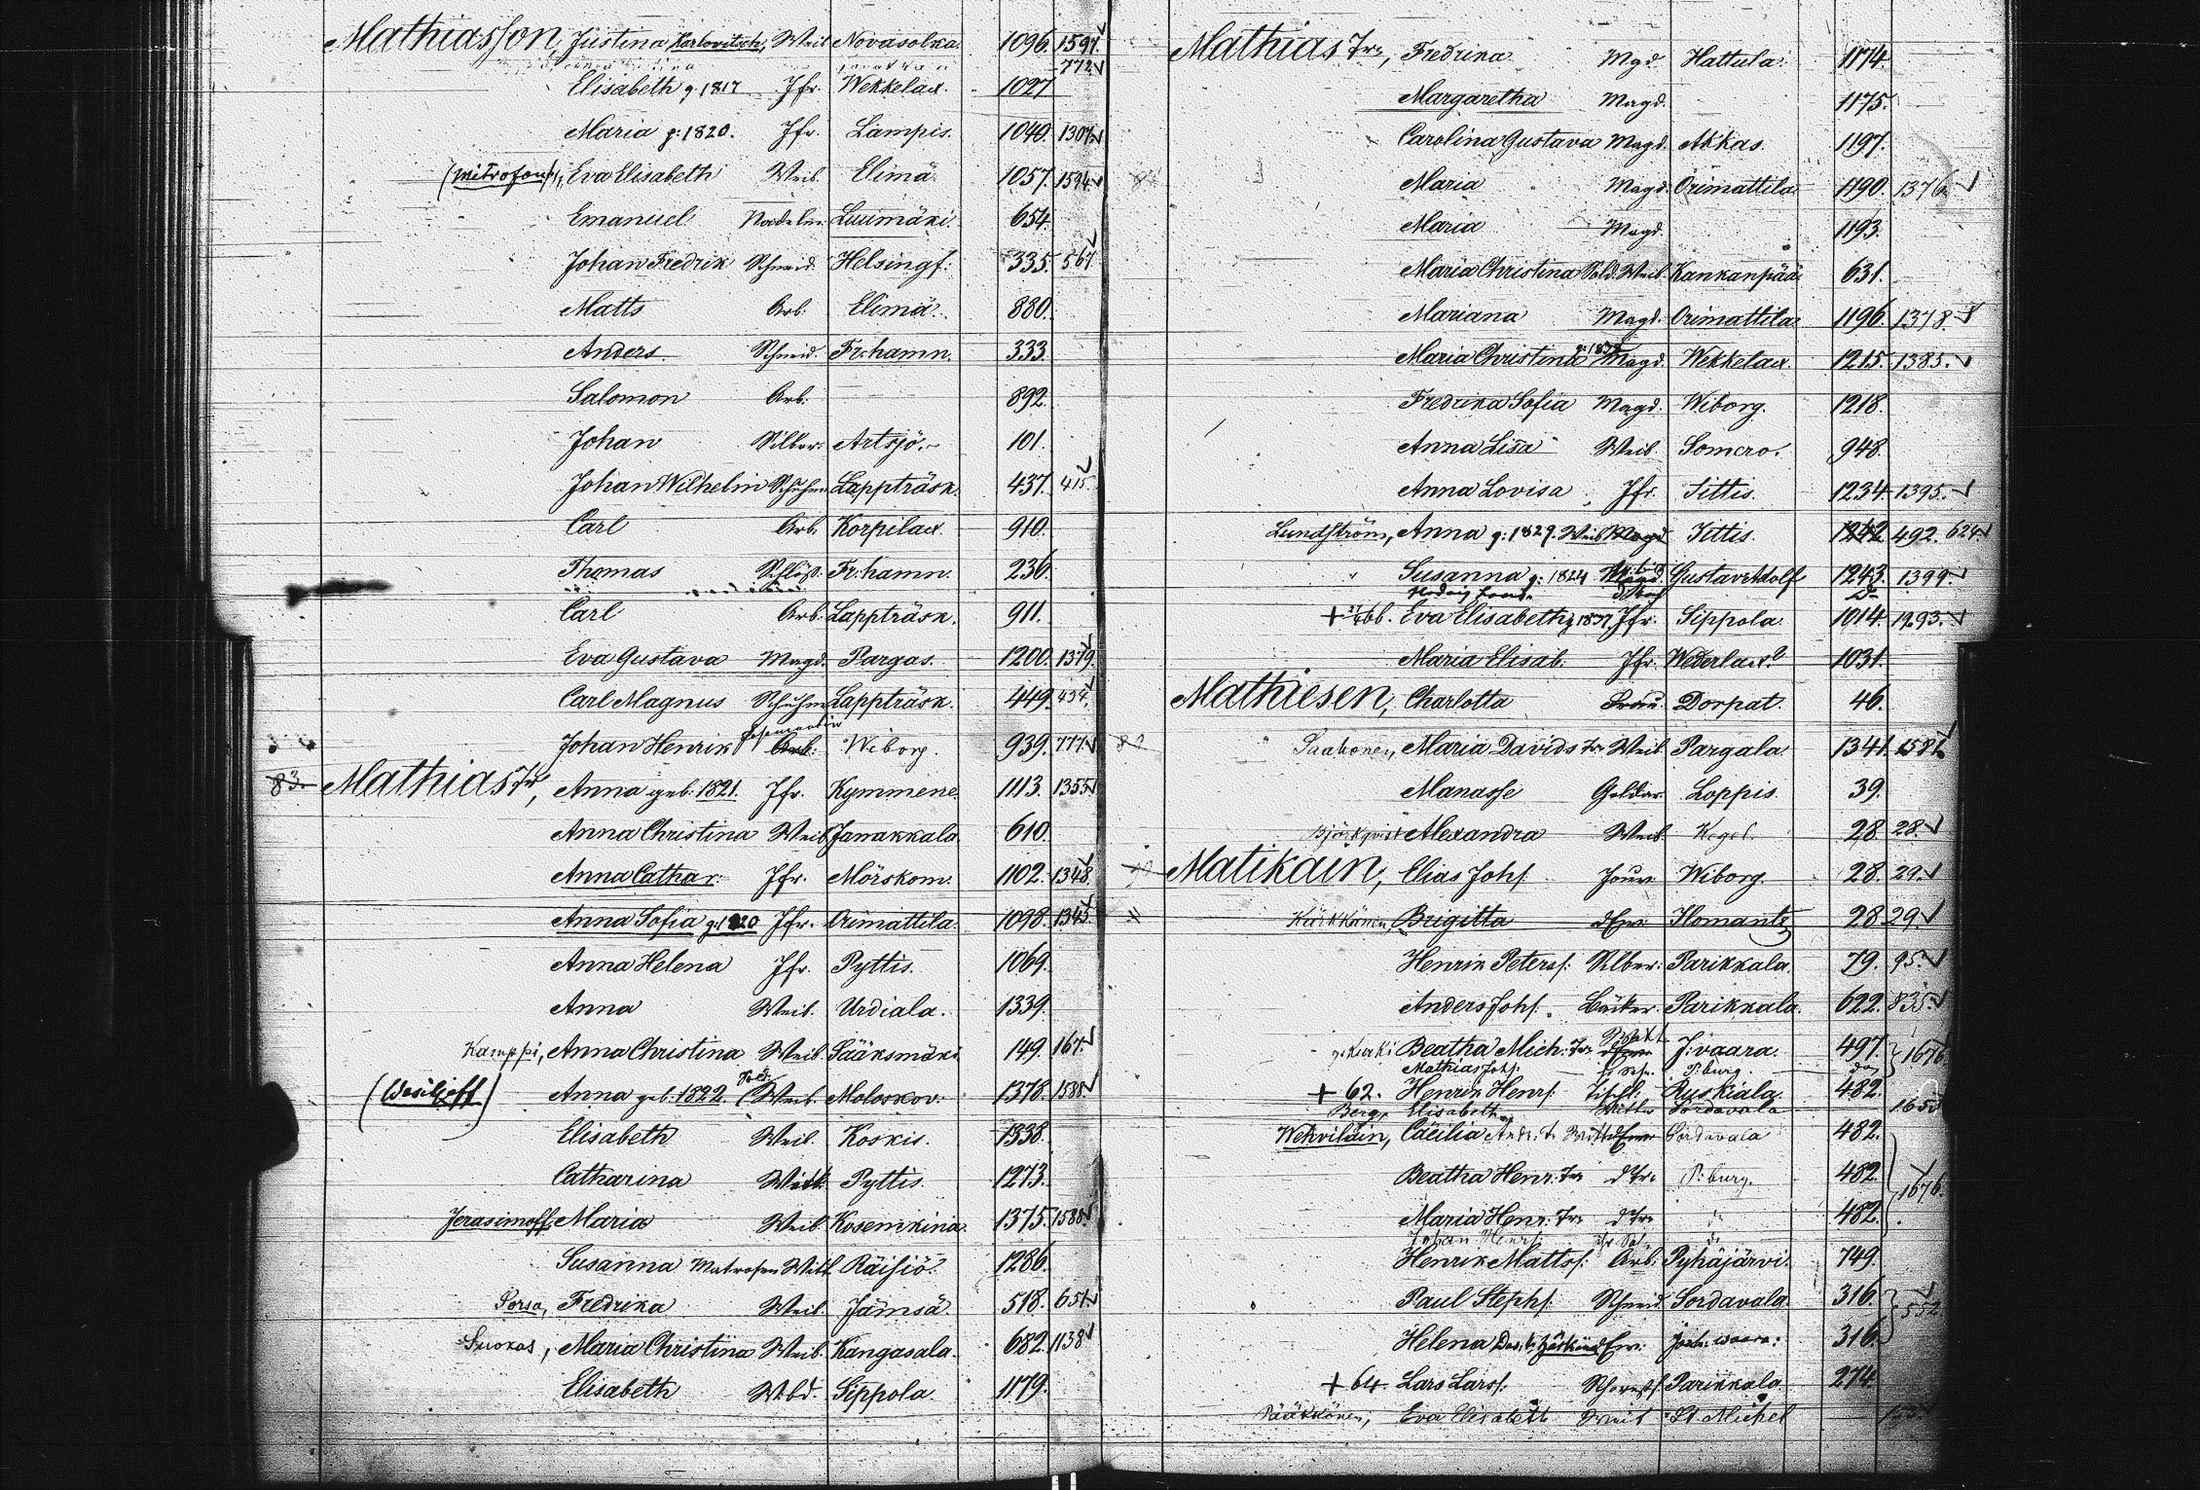 Mathiasson, Justina Karlovitsch, Weib Novasolka. 1096. 1597.
772
Elisabeth g. 1817 Jfr. Wekkelax. 1027
Maria g: 1820. Jfr. Lampis. 1040. 1307
Eva Elisabeth Weib. Elimä. 1057. 1594
Emanuel Nadelm. Luumäki. 654.
Johan Fredrik Schneid. Helsingf: 335. 567
Matts Arb: Elimä. 880.
Anders Schneid. Fr:hamn. 333.
Salomon Arb: 892.
Johan Silber: Artsjö. 101.
Johan Wilhelm Schuhm Lappträsk. 437. 415.
Carl Arb. Korpilax. 910.
Thomas Schlöß. Fr:hamn. 236.
Carl Arb: Lappträsk. 911.
Eva Gustava Magd. Pargas. 1200. 1379.
Carl Magnus Schuhm Lappträsk. 449. 434.
Johan Henrik Arb: Wiborg. 939. 777
83. Mathias Tr, Anna geb: 1821. Jfr. Kymmene. 1113. 1355
Anna Christina Weib Janakkala. 610.
Anna Cathar: Jfr. Mörskom. 1102. 1348.
Anna Sofia g: 1820 Jfr. Orimattila. 1098. 1345
Anna Helena Jfr. Pyttis. 1069.
Anna Weib. Urdiala. 1339.
Kamppi, Anna Christina Weib. Sääksmäki. 149. 167.
(Wasiljeff) Anna geb: 1822. (Sold. Weib. Moloskov: 1378. 1588
Elisabeth Weib. Koskis. 1338.
Catharina Witt. Pyttis. 1273.
Jerasimoff, Maria Weib. Kosemkina. 1375. 1588.
Susanna Matrosen Witt Räisiö. 1286.
Porsa, Fredrika Weib. Jämsä. 518. 651.
Suokas, Maria Christina Weib. Kangasala. 682. 1138
Elisabeth Wbd. Sippola. 1179.
Mathias Tr, Fredrika Mgd. Hattula. 1174.
Margaretha Magd. 1175.
Carolina Gustava Magd. Akkas. 1197.
Maria Magd. Orimattila. 1190. 1376
Maria Magd. 1193.
Maria Christina Sold. Weib. Kankanpää. 631.
Mariana Magd. Orimattila. 1196. 1378.
Maria Christina Magd. Wekkelax. 1215. 1385.
Fredrika Sofia Magd. Wiborg. 1218.
Anna Lisa Weib. Somero. 948.
Anna Lovisa Jfr. Jittis. 1234. 1395.
Lundström, Anna g: 1829. Weib Magd Jittis. 1242. 492. 624
Susanna g: 1824 Magd. Gustav Adolf 1243. 1399.
+ 66. Eva Elisabeth g 1837 Jfr. Sippola. 1014. 1293.
Maria Elisab. Jfr. Wederlax? 1031.
Mathiesen, Charlotta Frau. Dorpat. 46.
Saahonen, Maria Davids Tr Weib. Pargala. 1341. 1581
Manasse Goldar. Loppis. 39.
Björkqvist Alexandra Weib. Kegel. 28. 28.
Matikain, Elias Johs. Jour Wiborg. 28. 29.
Kärkkänen, Brigitta dEw. Ilomants 28. 29.
Henrik Peterss: Silber: Parikkala. 79. 95.
Anders Johs. Bäcker. Parikkala. 622. 835.
Beatha Mich: Tr J:vaara. 497. 1676.
Mathias Johs: P:burg.
+ 62. Henrik Henrs: Tischl: Ruskiala. 482.
Berg, Elisabeth Sordavala 165
Wekviläin, Cäcilia Sordavala 482.
Beatha Henr: Tr dTr P:burg. 482. 1676.
Maria Henr: Tr dTr 482.
Johan Henrs:
Henrik Mattss: Arb: Pyhäjärvi. 749.
Paul Stephs: Schneid Sordavala. 316. 552.
Helena dEw: Joch: waara: 316.
+ 64. Lars Larss: Parikkala. 274.
Pääkkönen, Eva Elisabeth Weib St. Michel